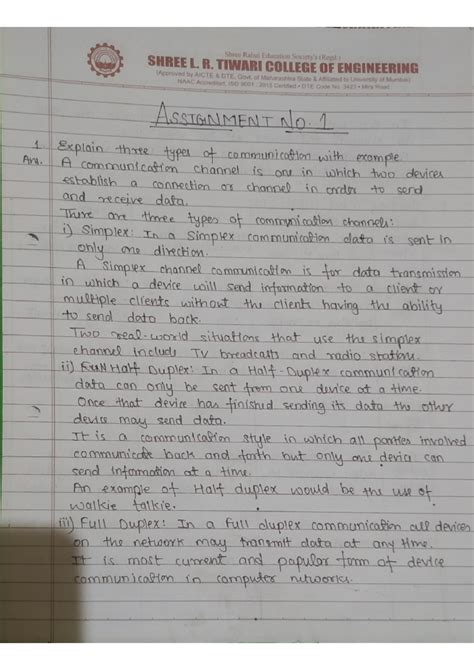 Shree Rahul Education Society's (Regd.)
SHREE L. R. TIWARI COLLEGE OF ENGINEERING
(Approved by AICTE & DTE, Govt. of Maharashtra State & Affiliated to University of Mumbai)
NAAC Accredited, ISO 9001 : 2015 Certified • DTE Code No. 3423 • Mira Road
ASSIGNMENT NO. 1
1. Explain three types of communication with example.
Ans. A communication channel is one in which two devices
establish a connection or channel in order to send
and receive data.
There are three types of communication channels:
i) Simplex: In a Simplex communication data is sent in
only one direction.
A Simplex channel communication is for data transmission
in which a device will send information to a client or
multiple clients without the clients having the ability
to send data back.
Two real-world situations that use the simplex
channel include TV broadcasts and radio station.
ii) Half Duplex: In a Half-Duplex communication
data can only be sent from one device at a time.
Once that device has finished sending its data the other
device may send data.
It is a communication style in which all parties involved
communicate back and forth but only one device can
send information at a time.
An example of Half duplex would be the use of
walkie talkie.
iii) Full Duplex: In a full duplex communication all devices
on the network may transmit data at any time.
It is most current and popular form of device
communication in computer networks.